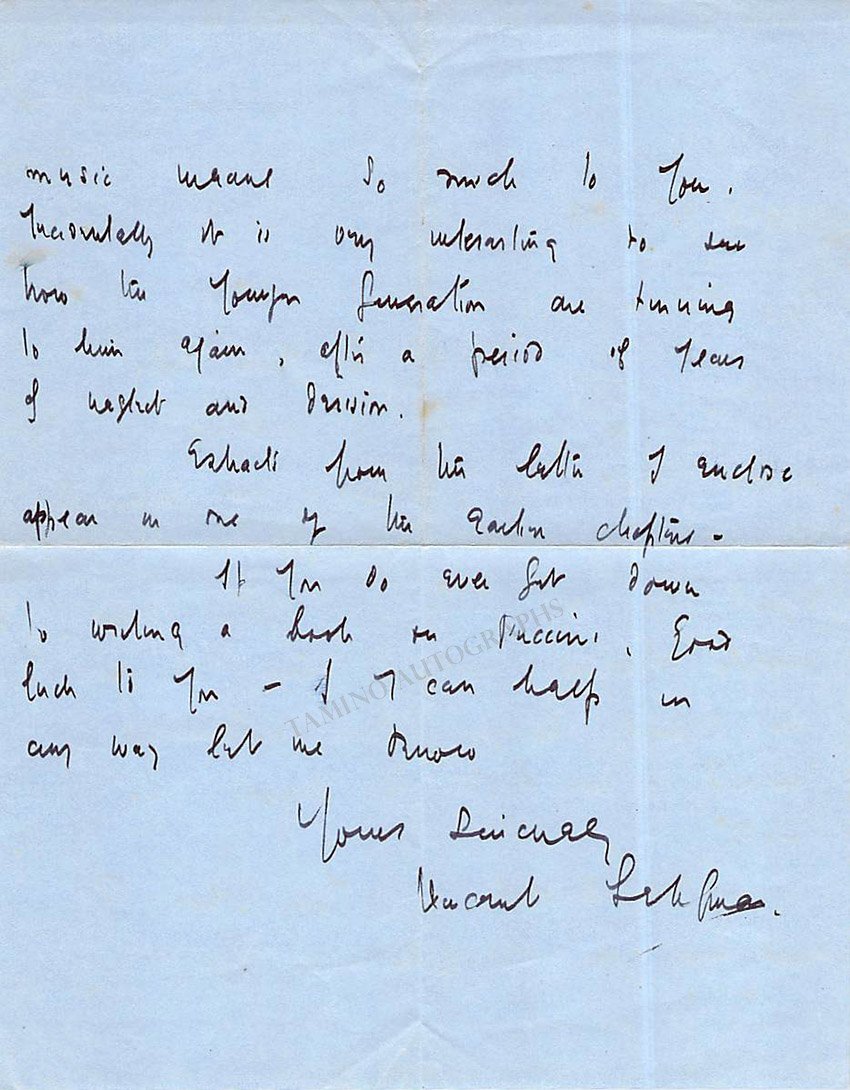 music means so much to you.
Incidentally it is very interesting to see
how the younger generation are turning
to him again, after a period of years
of neglect and derision.
Extracts from the letter I enclose
appear in one of the earlier chapters -
If you do ever get down
to writing a book on Puccini, Good
luck to you - If I can help in
any way let me know
Yours sincerely
Vincent
TAMINO AUTOGRAPHS